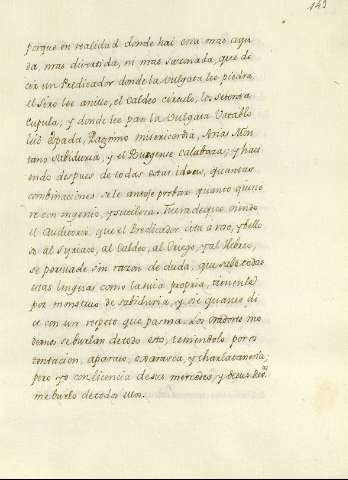 143
porque en realidad donde hai cosa mas agu
da, mas divertida, ni mas sazonada, que de
cir un Predicador donde la Vulgata lee piedra
el Siro lee anillo, el Caldeo circulo, los Setenta
Cupula; y donde lee pan la Vulgata Vatablo
leió Espada, Pagnino misericordia, Arias Mon
tano Sabiduria, y el Burgense calabaza; y hact
endo despues de todas estas idoas, quantas
combinaciones se le antoje probar quanto quisie
re con ingenio, y sutileza. Fuera de que oiendo
el Auditorio que el Predicador cita a raso, y bello
so al Syriaco, al Caldeo, al Griego, y al Hebreo,
se persuade sin razon de duda, que sabe todas
estas lenguas como la suia propria, tienenle
por monstruo de sabiduria, y oie quanto di
ce con un respeto que pasma. Los oradores mo
dernos se burlan de todo esto, teniendolo por os
tentacion, aparato, oxarasca, y charlataneria;
pero yo con licencia de sus mercedes, y de sus
me burlo de todos ellos.